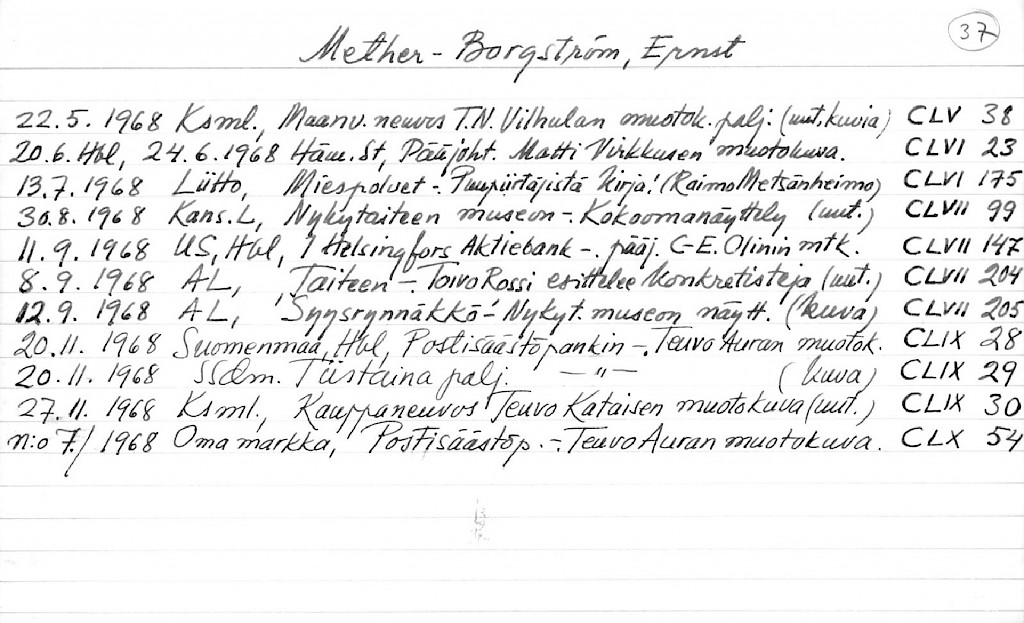 37
Mether-Borgström, Ernst
22.5.1968 Ksml., Maanv. neuvos T.N. Vilhulan muotok. palj. (uut. kuvia) CLV 38
20.6. Hbl, 24.6.1968 Häm. St, Pääjoht. Matti Virkkusen muotokuva. CLVI 23
13.7.1968 Liitto, Miespolvet -. Puupiirtäjistä kirja! (Raimo Metsänheimo) CLVI 175
30.8.1968 Kans. L, Nykytaiteen museon -. Kokoomanäyttely (uut.) CLVII 99
11.9.1968 US, Hbl, I Helsingfors Aktiebank -. pääj. C-E. Olinin mtk. CLVII 147
8.9.1968 AL, Taiteen -. Toivo Rossi esittelee konkretisteja (uut.) CLVII 204
12.9.1968 AL, 'Syysrynnäkkö' - Nykyt. museon näytt. (kuva) CLVII 205
20.11.1968 Suomenmaa, Hbl, Postisäästöpankin -. Teuvo Auran muotok. CLIX 28
20.11.1968 SSdm. Tiistaina palj. —"— (kuva) CLIX 29
27.11.1968 Ksml., Kauppaneuvos Teuvo Kataisen muotokuva (uut.) CLIX 30
n:o 7/1968 Oma markka, Postisäästöp. -. Teuvo Auran muotokuva. CLX 54